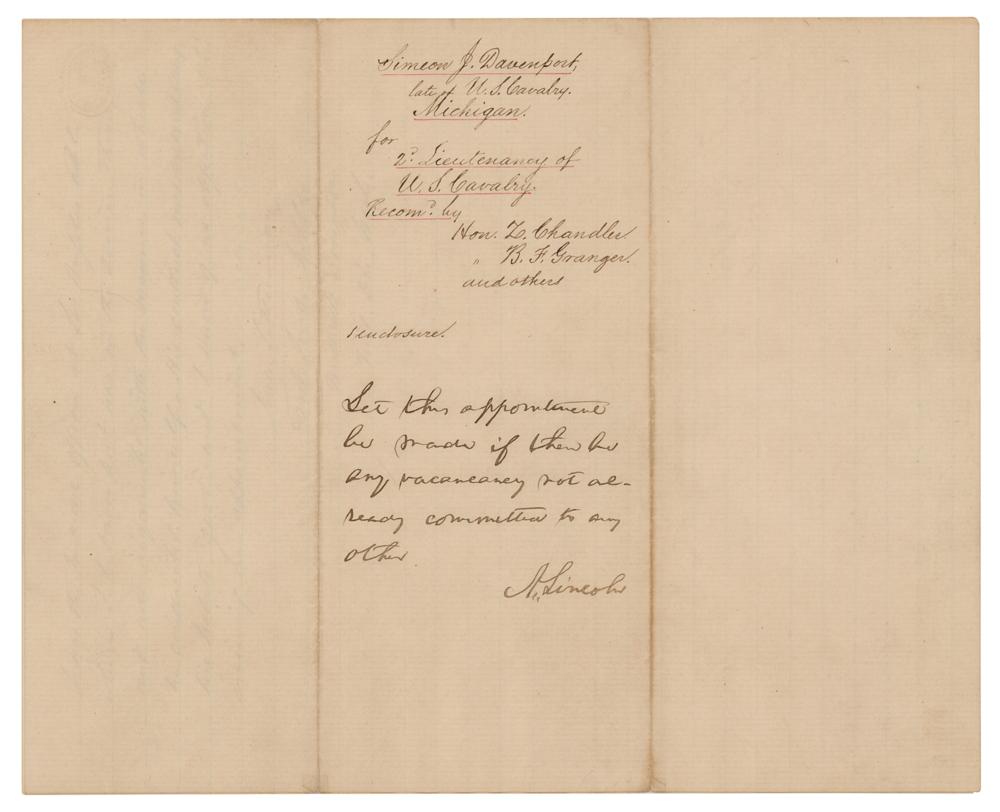 Simeon J. Davenport,
late of U.S. Cavalry.
Michigan.
for
2d. Lieutenancy of
U.S. Cavalry.
Recomd. by
Hon. Z. Chandler.
" B. F. Granger.
and others
1 enclosure.
Let this appointment
be made if there be
any vacancancy not al-
ready committed to any
other
A. Lincoln